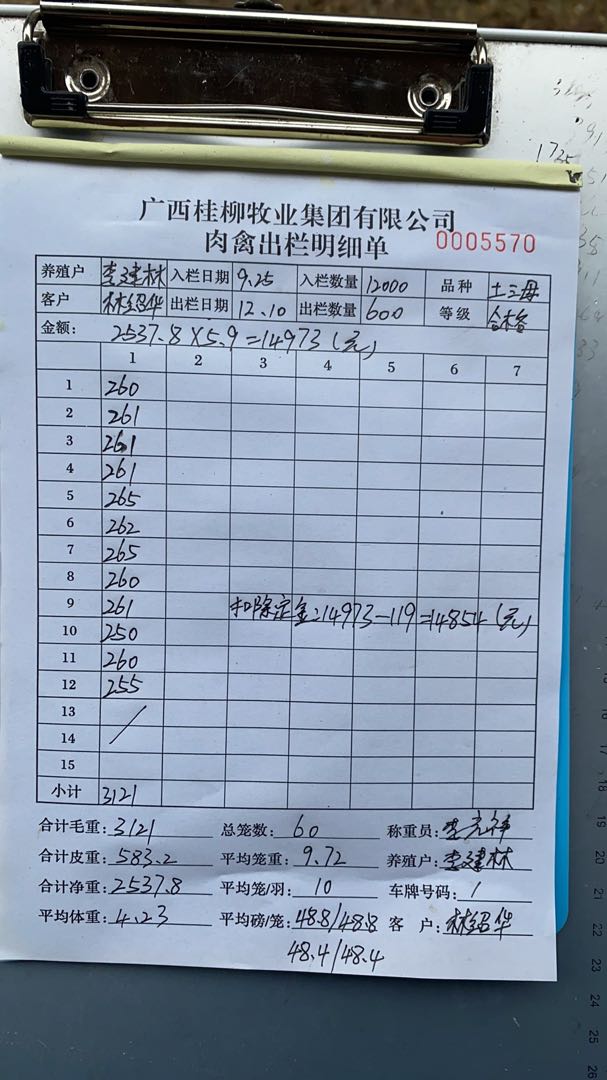 广西桂柳牧业集团有限公司
肉禽出栏明细单 0005570
养殖户 李建林 入栏日期 9.25 入栏数量 12000 品种 土三母
客户 林绍华 出栏日期 12.10 出栏数量 600 等级 合格
金额: 2537.8×5.9=14973(元)
1 2 3 4 5 6 7
1 260
2 261
3 261
4 261
5 265
6 262
7 265
8 260
9 261 扣除定金:14973-119=14854(元)
10 250
11 260
12 255
13
14
15
小计 3121
合计毛重: 3121 总笼数: 60 称重员:
合计皮重: 583.2 平均笼重: 9.72 养殖户: 李建林
合计净重: 2537.8 平均笼/羽: 10 车牌号码: /
平均体重: 4.23 平均磅/笼: 48.8/48.8 客户: 林绍华
48.4/48.4
18
19
20
21
22
23
24
25
26